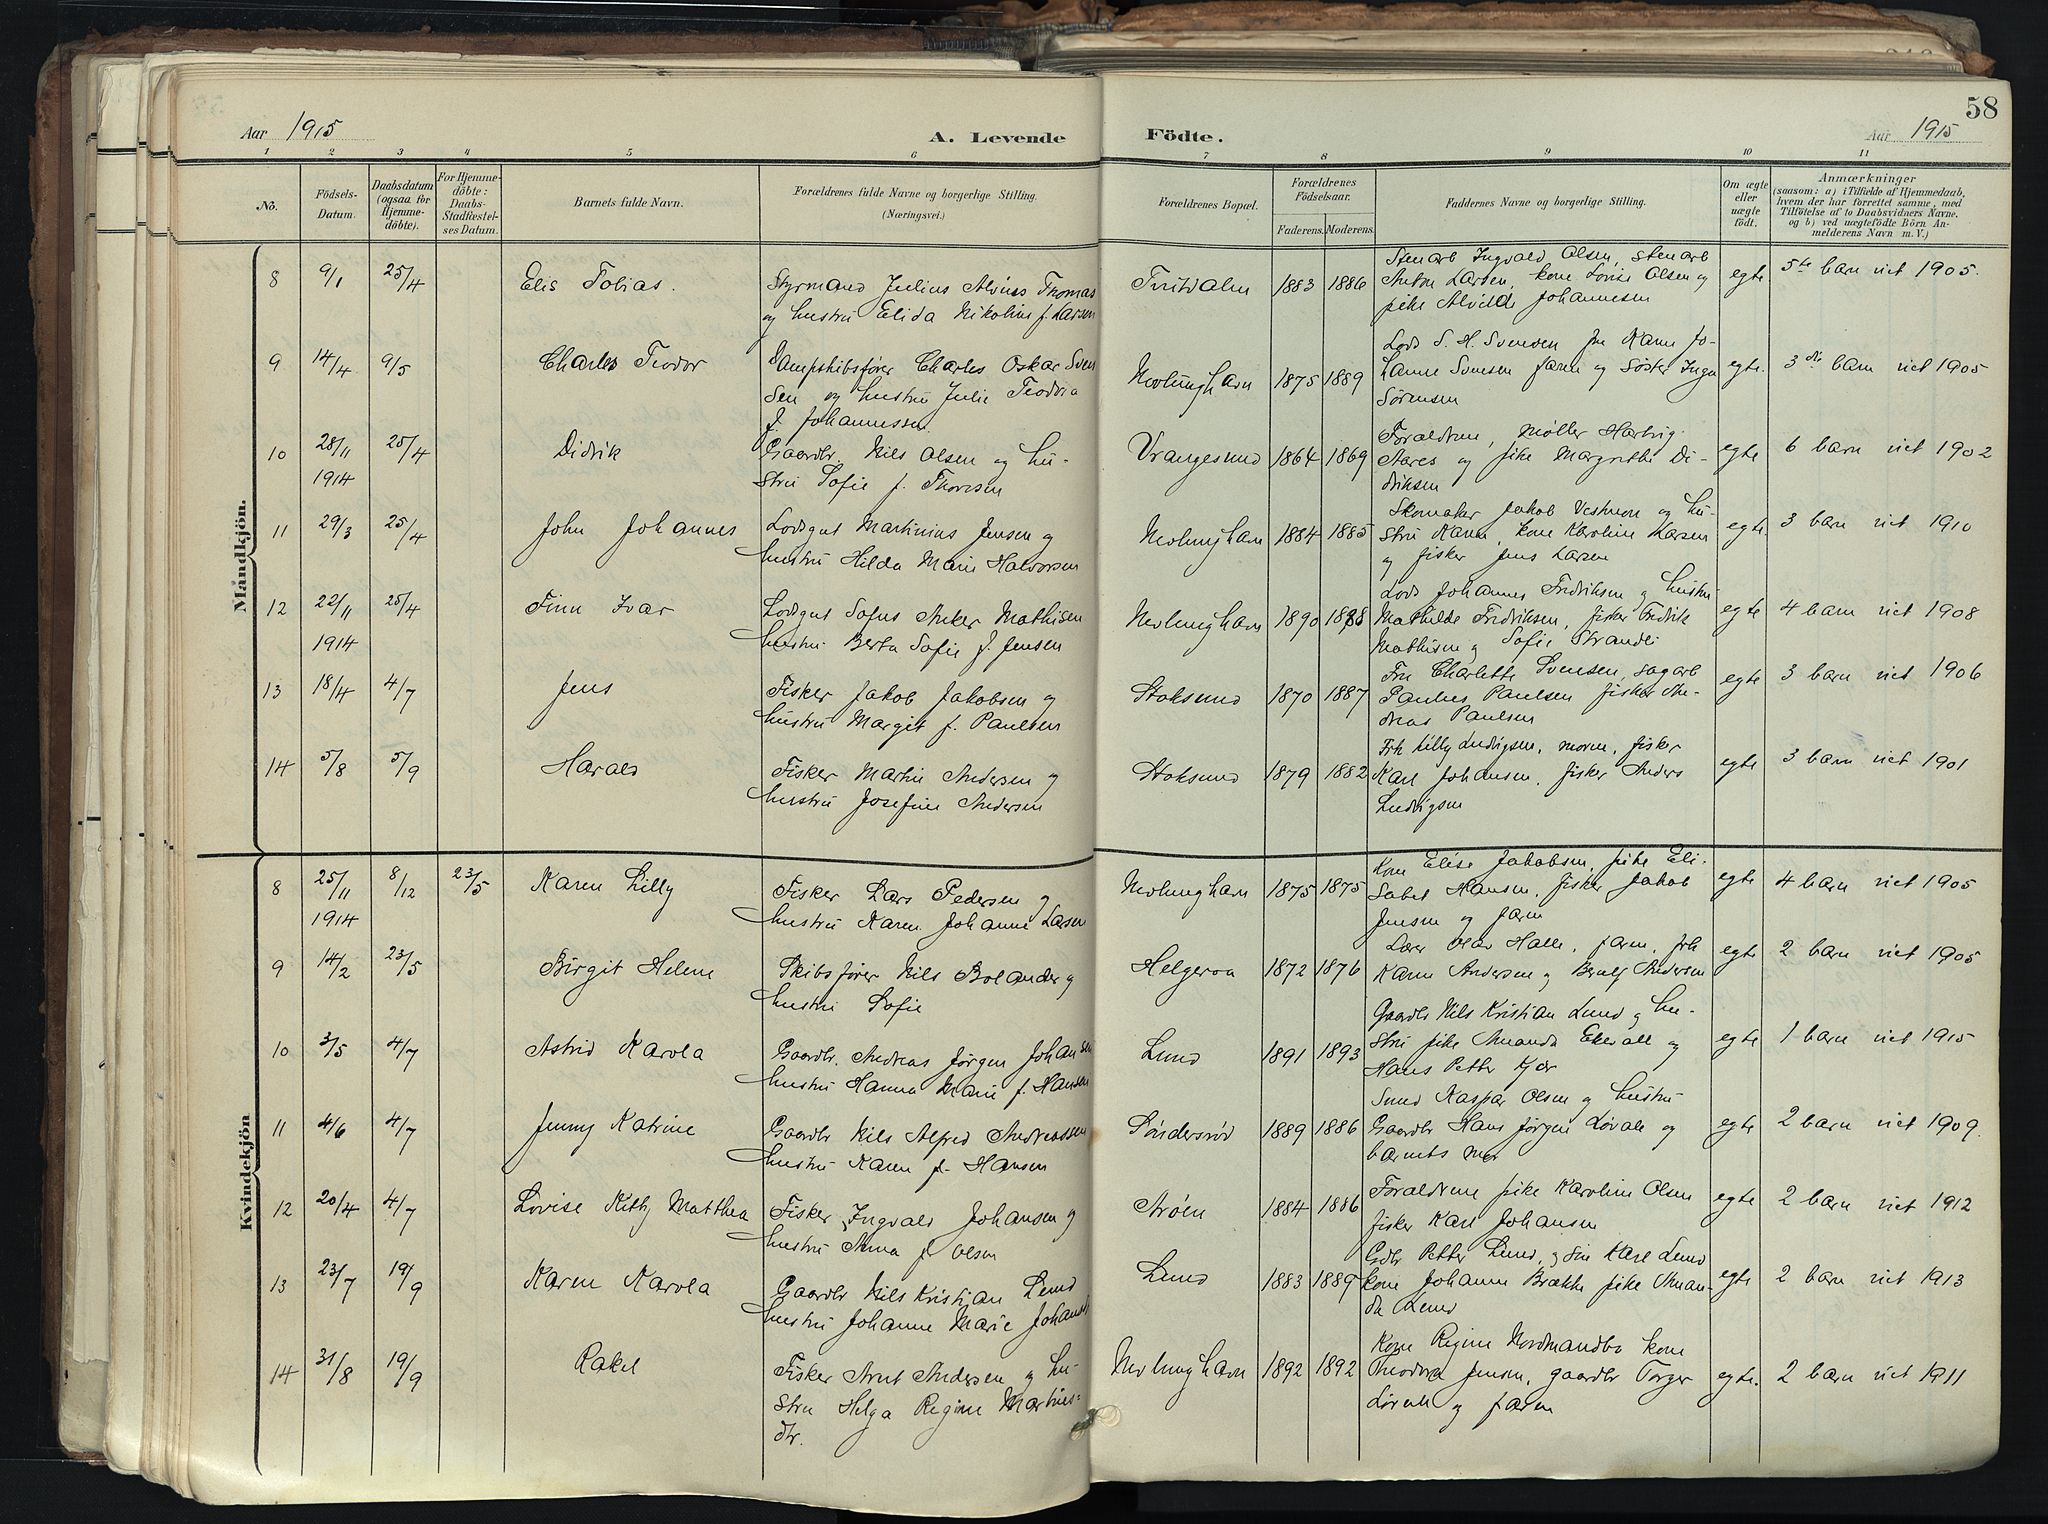 58
Aar 1915 A. Levende Födte. Aar 1915
1 2 3 4 5 6 7 8 9 10 11
No.
Födsels-Datum.
Daabsdatum (ogsaa for Hjemme-döbte).
For Hjemme-döbte: Daabs-Stadfæstel-ses Datum.
Barnets fulde Navn.
Forældrenes fulde Navne og borgerlige Stilling. (Næringsvei.)
Forældrenes Bopæl.
Forældrenes Födselsaar.
Faderens. Moderens.
Faddernes Navne og borgerlige Stilling.
Om ægte eller uægte födt.
Anmærkninger
(saasom: a) i Tilfælde af Hjemmedaab, hvem der har forrettet samme, med Tilföielse af to Daabsvidners Navne, og b) ved uægtefödte Börn An-melderens Navn m. V.)
Mandkjön.
8 9/1 25/4 Elis Tobias. Styrmand Julius Alvius Thomas
og hustru Elida Nikoline f. Larsen
Tvitdalm 1883 1886
Stenarb Ingvald Olsen, stenarb
Anton Larsen, kone Lovise Olsen og
pike Alvilde Johannesen
egte 5te barn viet 1905.
9 14/4 9/5 Charles Teodor Dampskibsfører Charles Oskar Sven
sen og hustru Julie Teodora
f. Johannessen.
Nevlunghavn 1875 1889
Lods S. H. Svensen fru Karen Jo-
hanne Svensen faren og søster Inga
Sörensen
egte. 3die barn viet 1905
10 28/11 1914 25/4 Didrik Gaardbr. Nils Olsen og hu-
stru Sofie f. Thoresen
Vrangesund 1864 1869
Foreldrene, møller Hartvig
Aares og pike Margrethe Di-
driksen
egte 6 barn viet 1902
11 29/3 25/4 John Johannes Lodsgut Martinius Jensen og
hustru Hilda Marie Halvorsen
Nevlunghavn 1884 1885
Skomaker Jakob og hu-
stru Karen, kone Karoline Larsen
og fisker Jens Larsen
egte. 3 barn viet 1910
12 22/11 1914 25/4 Finn Ivar Lodsgut Sofus Anker Mathisen
hustru Berta Sofie f. Jensen
Nevlunghavn 1890 1888
Lods Johannes Fredriksen og hustru
Mathilde Fredriksen, fisker Fredrik
Mathisen og Sofie Strande
egte 4 barn viet 1908
13 18/4 4/7 Jens Fisker Jakob Jakobsen og
hustru Margit f. Paulsen
Stoksund 1870 1887
Fru Charlotte Svensen, sagarb
Paulus Paulsen fisker An-
dreas Paulsen
egte 3 barn viet 1906
14 5/8 5/9 Harald Fisker Martin Andersen og
hustru Josefine Andersen
Stoksund 1879 1882
Frk Lilly Ludvigsen, moren, fisker
Karl Johansen, fisker Anders
Ludvigsen
egte 3 barn viet 1901
Kvindekjön
8 25/11 1914 8/12 23/5 Karen Lilly Fisker Lars Pedersen og
hustru Karen Johanne Larsen
Nevlunghavn 1875 1875
Kone Elise Jakobsen, pike Eli-
sabet Hansen, fisker Jakob
Jensen og faren
egte 4 barn viet 1905
9 14/2 23/5 Birgit Helene Skibsfører Nils Bolander og
hustru Sofie
Helgeroa 1872 1876
Lærer Olav Halle, faren, frk
Karen Andersen og Andersen
egte 2 barn viet 1905
10 3/5 4/7 Astrid Karola Gaardbr. Andreas Jørgen Johansen
hustru Hanna Marie f. Hansen
Lund 1891 1893
Gaardbr Nils Kristian Lund og hu-
stru pike Amanda Ekevall og
Hans Petter Kjær
egte 1 barn viet 1915
11 4/6 4/7 Jenny Katrine Gaardbr Nils Alfred Andreassen
hustru Karen f. Hansen
Söndersröd 1889 1886
Smed Kaspar Olsen og hustru
Gaardbr Hans Jørgen Løvall og
barnets mor
egte 2 barn viet 1909.
12 20/4 4/7 Lovise Kitty Matthea Fisker Ingvald Johansen og
hustru Anna f. Olsen
Arøen 1884 1886
Foreldrene pike Karoline Olsen
fisker Karl Johansen
egte 2 barn viet 1912
13 23/7 19/9 Karen Karola Gaardbr Nils Kristian Lund
hustru Johanne Marie Johansdt
Lund 1883 1889
Gdbr Petter Lund, og søn Karl Lund
kone Johanne Brække pike Aman-
da Lund
egte 2 barn viet 1913
14 31/8 19/9 Rakel Fisker Arnt Andersen og hu-
stru Helga Regine Martinus-
dtr.
Nevlunghavn 1892 1892
Kone Regine Nordmandbo kone
Theodora Jensen, gaardbr Torger
Løvall og faren
egte. 2 barn viet 1911